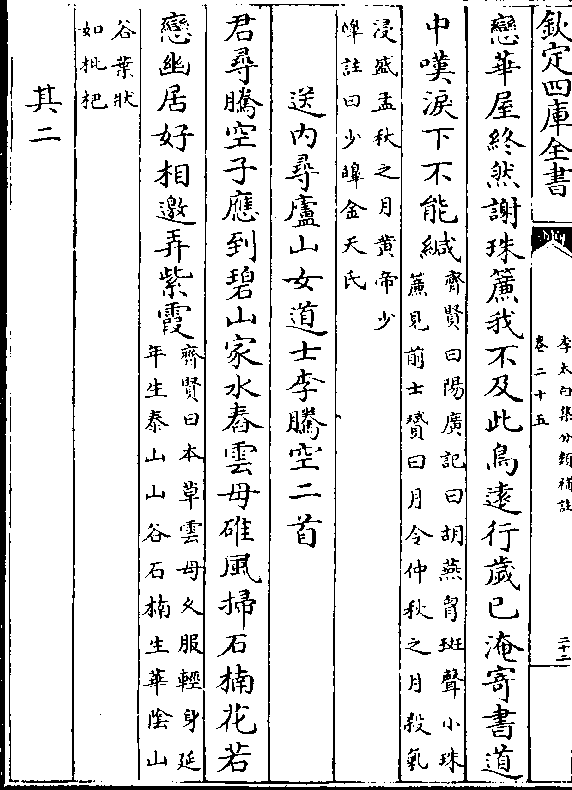 欽定四庫全書
李太白集分類補註
卷二十五
二十二
戀華屋終然謝珠簾我不及此鳥遠行歲已淹寄書道
中嘆淚下不能緘
齊賢曰陽廣記曰胡燕胷斑聲小珠
簾見前士贇曰月令仲秋之月殺氣
浸盛孟秋之月黄帝少
皥註曰少皥金天氏
送内尋廬山女道士李騰空二首
君尋騰空子應到碧山家水舂雲母碓風掃石楠花若
戀幽居好相邀弄紫霞
齊賢曰本草雲母久服輕身延
年生泰山山谷石楠生華陰山
谷葉狀
如枇杷
其二